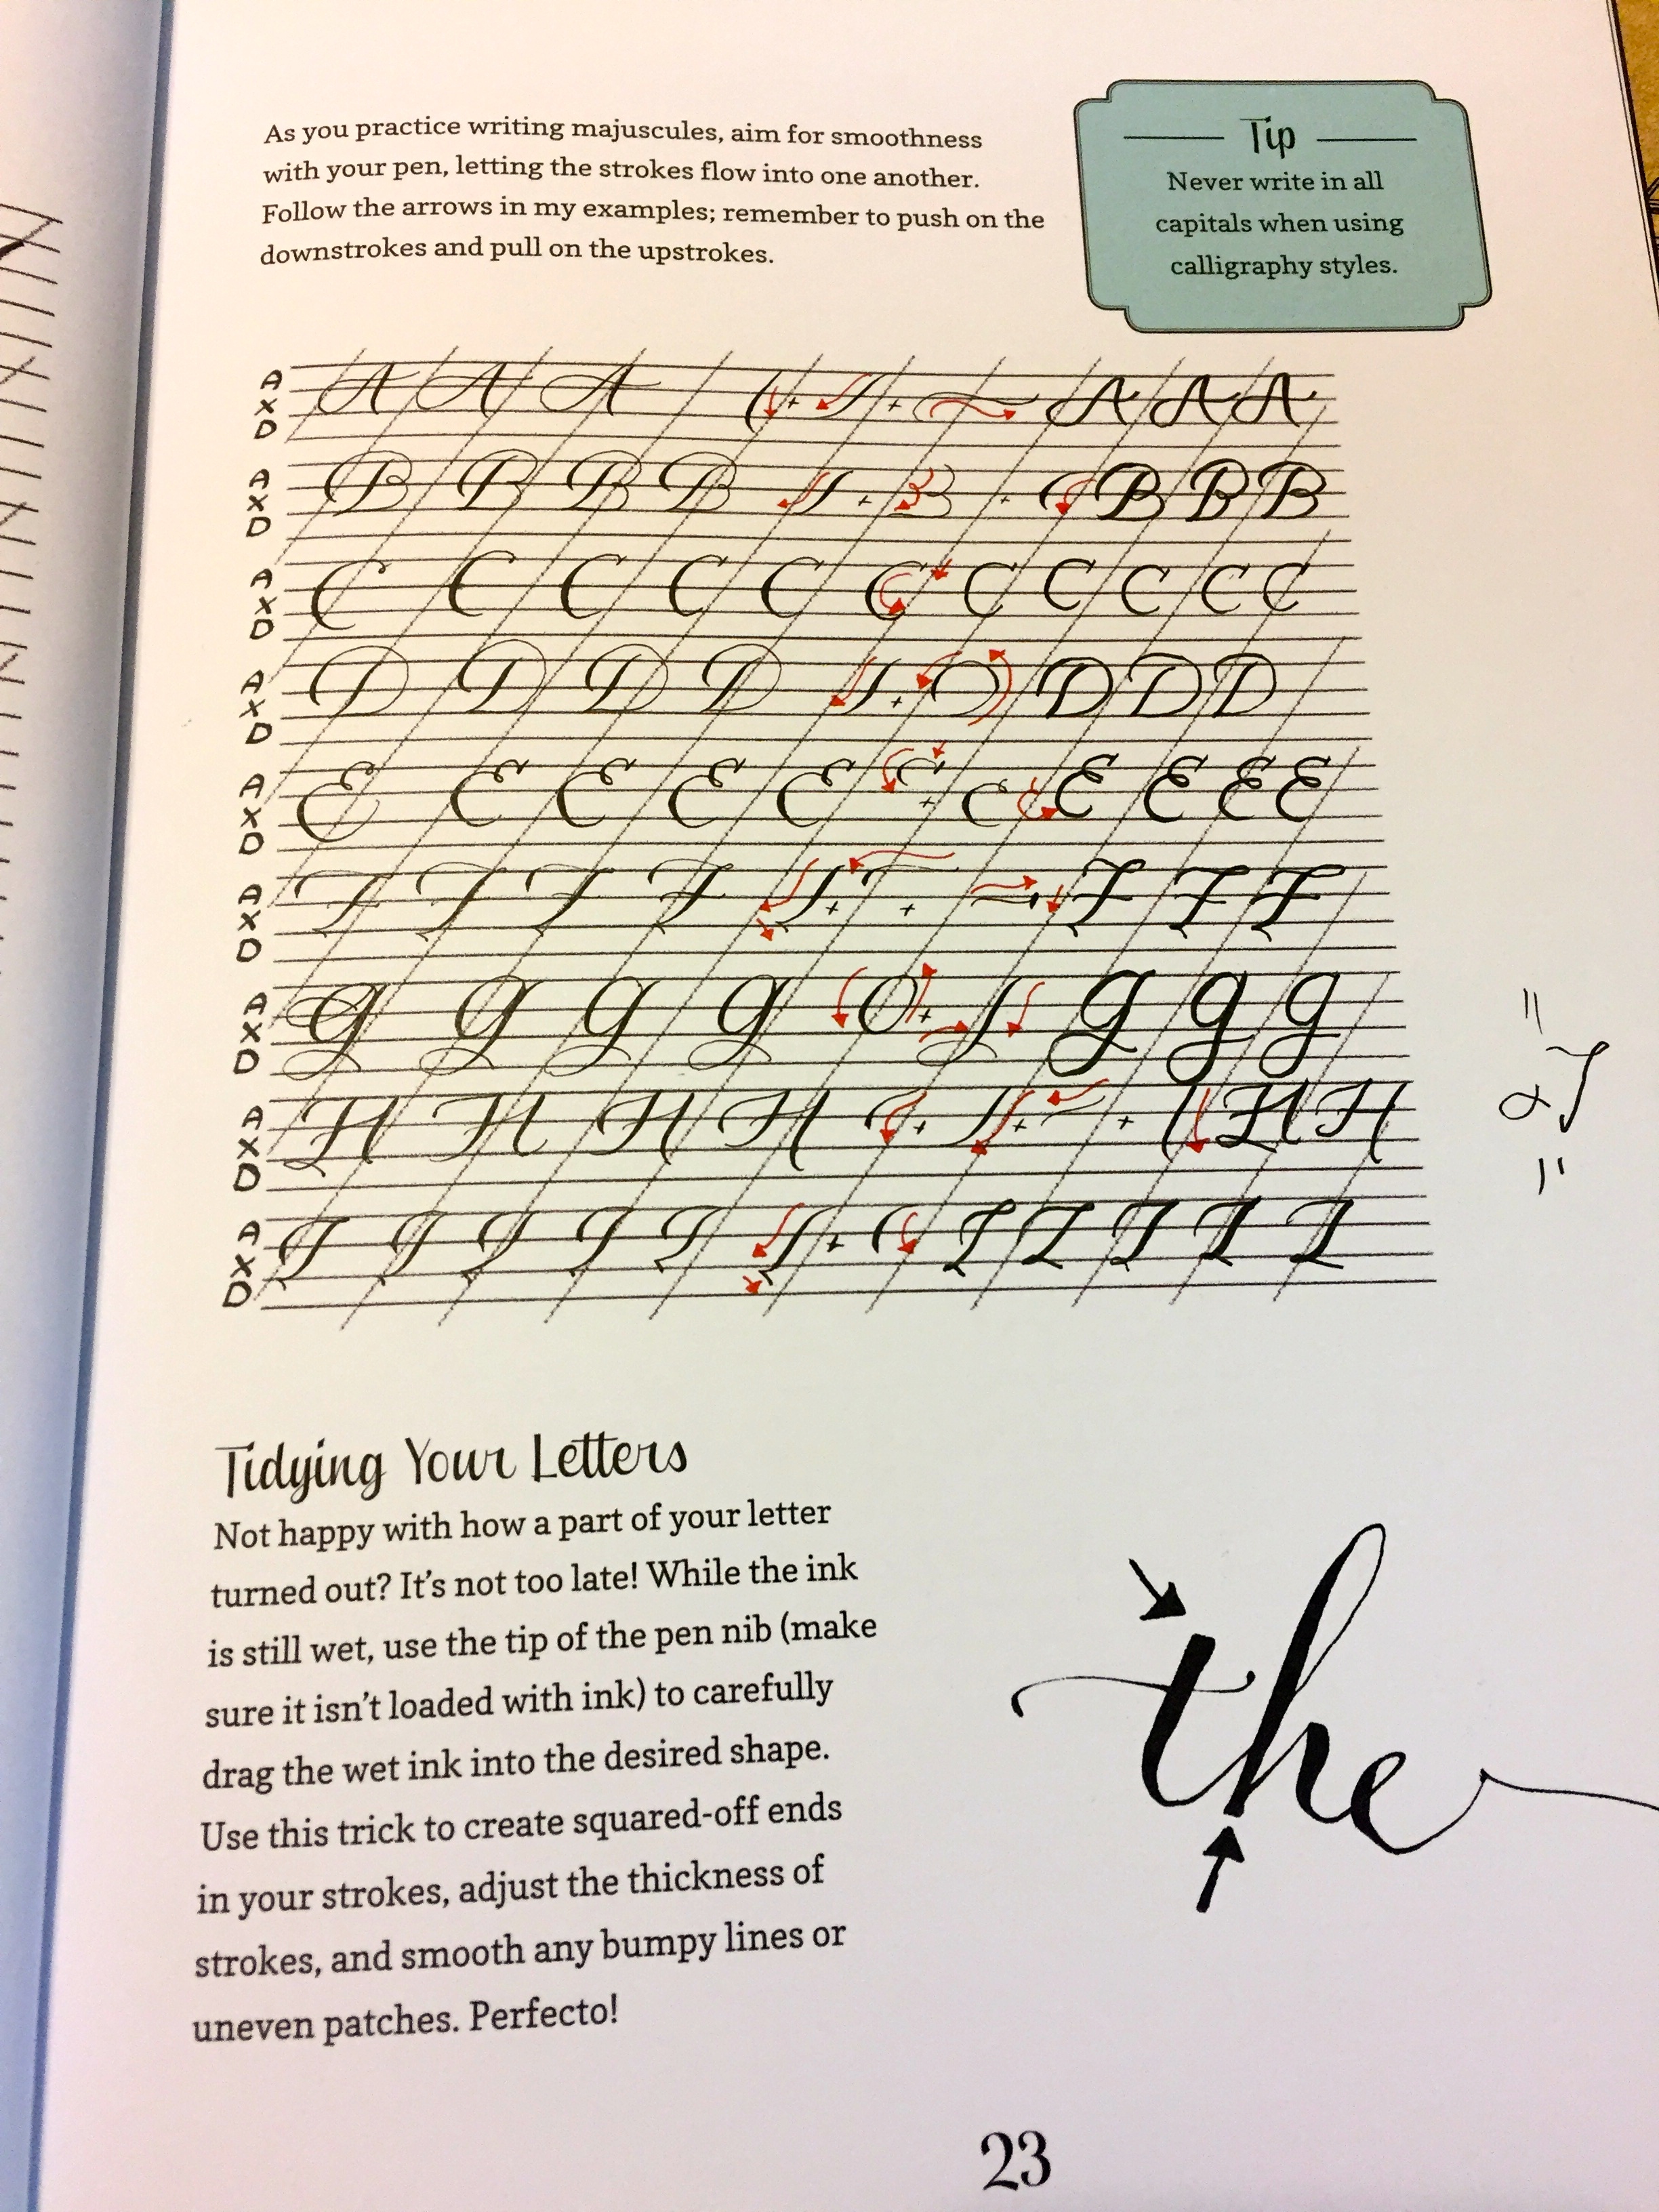 As you practice writing majuscules, aim for smoothness
with your pen, letting the strokes flow into one another.
Follow the arrows in my examples; remember to push on the
downstrokes and pull on the upstrokes.
Tip
Never write in all
capitals when using
calligraphy styles.
A
X
D
A A A + + A A A
A
X
D
B B B B + + B B B
A
X
D
C C C C C C C C C C C
A
X
D
D D D D + D D D
A
X
D
E E E E E + E E E E
A
X
D
F F F F + + F F F
A
X
D
G G G G + G G G
A
X
D
H H H H + + + H H
A
X
D
I I I I I + I I I I I
Tidying Your Letters
Not happy with how a part of your letter
turned out? It's not too late! While the ink
is still wet, use the tip of the pen nib (make
sure it isn't loaded with ink) to carefully
drag the wet ink into the desired shape.
Use this trick to create squared-off ends
in your strokes, adjust the thickness of
strokes, and smooth any bumpy lines or
uneven patches. Perfecto!
the
23